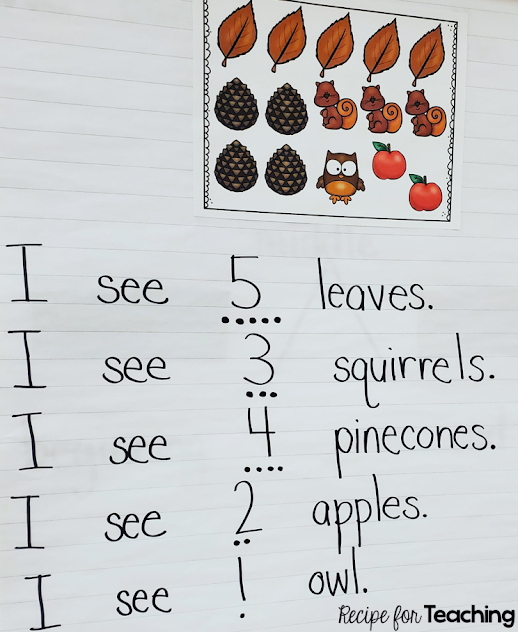 I see 5 leaves.
I see 3 squirrels.
I see 4 pinecones.
I see 2 apples.
I see 1 owl.
Recipe for Teaching